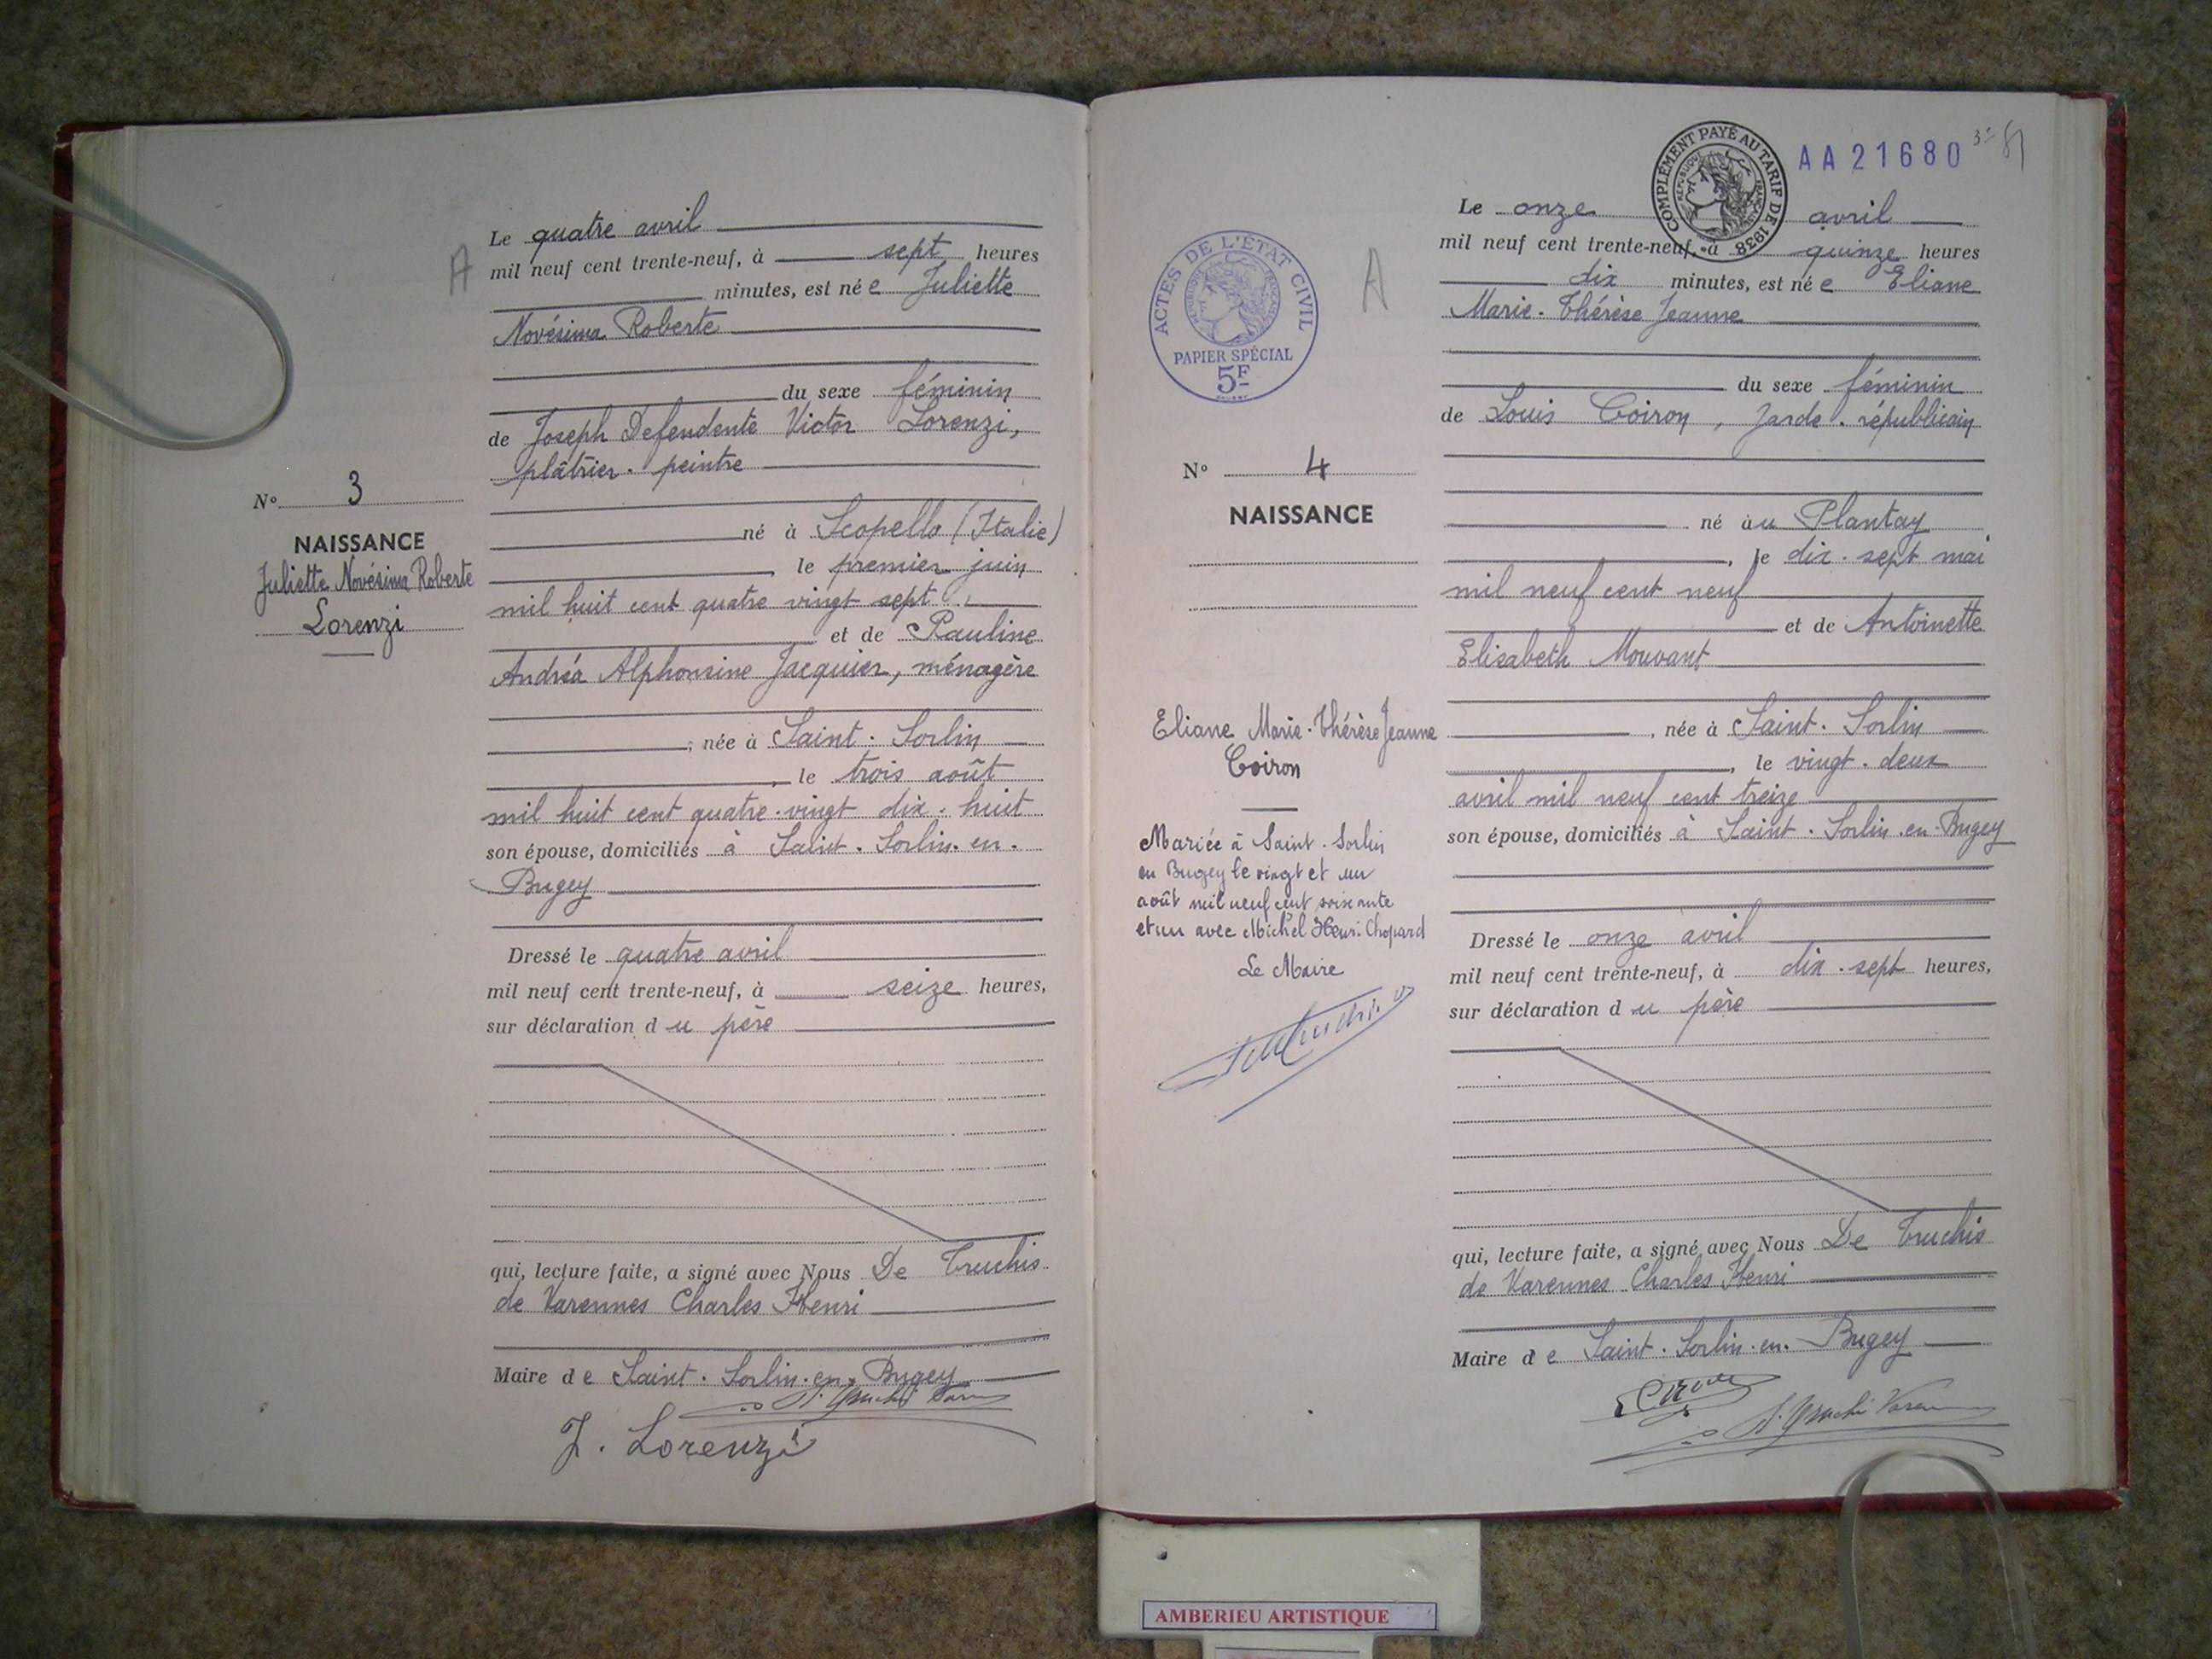 Le quatre avril
A
mil neuf cent trente-neuf, à sept heures
minutes, est née Juliette
Novésima Roberte
du sexe féminin
de Joseph Defendente Victor Lorenzi,
plâtrier-peintre
né à Scopello (Italie)
, le premier juin
mil huit cent quatre vingt sept,
et de Pauline
Andréa Alphonsine Jacquier, ménagère
, née à Saint-Sorlin
, le trois août
mil huit cent quatre-vingt dix-huit
son épouse, domiciliés à Saint-Sorlin-en-
Bugey
Dressé le quatre avril
mil neuf cent trente-neuf, à seize heures,
sur déclaration du père
qui, lecture faite, a signé avec Nous De Truchis
de Varennes Charles Henri
Maire de Saint-Sorlin-en-Bugey
J. Lorenzi
N° 3
NAISSANCE
Juliette Novésima Roberte
Lorenzi
COMPLÉMENT PAYÉ AU TARIF DE 1938
RÉPUBLIQUE FRANÇAISE
AA21680
Le onze avril
mil neuf cent trente-neuf, à quinze heures
dix minutes, est née Eliane
Marie-Thérèse Jeanne
du sexe féminin
de Louis Coiron, garde-républicain
né au Plantay
, le dix-sept mai
mil neuf cent neuf
et de Antoinette
Elisabeth Mouvant
, née à Saint-Sorlin
, le vingt-deux
avril mil neuf cent treize
son épouse, domiciliés à Saint-Sorlin-en-Bugey
Dressé le onze avril
mil neuf cent trente-neuf, à dix-sept heures,
sur déclaration du père
qui, lecture faite, a signé avec Nous De Truchis
de Varennes Charles Henri
Maire de Saint-Sorlin-en-Bugey
ACTES DE L'ÉTAT CIVIL
RÉPUBLIQUE FRANÇAISE
PAPIER SPÉCIAL
5F
A
N° 4
NAISSANCE
Eliane Marie-Thérèse Jeanne
Coiron
Mariée à Saint-Sorlin
en Bugey le vingt et un
août mil neuf cent soixante
et un avec Michel Henri Chopard
Le Maire
AMBERIEU ARTISTIQUE